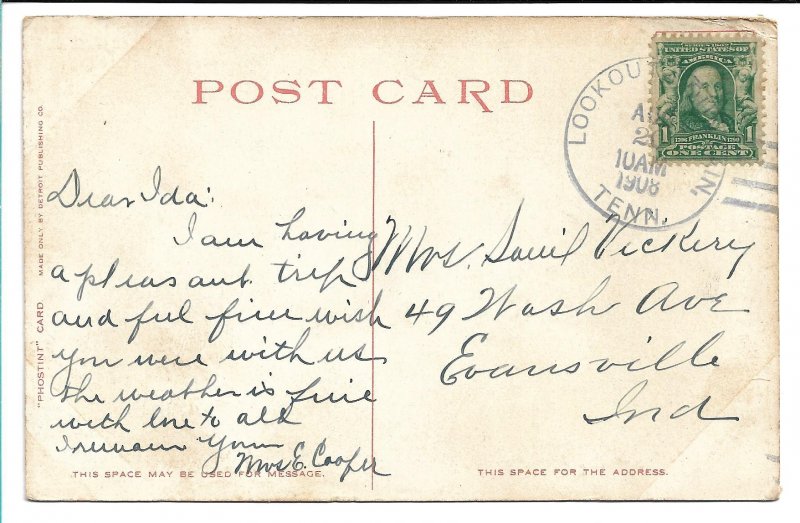 POST CARD
LOOKOUT
MTN,
TENN.
AU
2
10AM
1908
SERIES 1902
UNITED STATES OF
AMERICA
1 FRANKLIN 1
POSTAGE
ONE CENT
"PHOSTINT" CARD MADE ONLY BY DETROIT PUBLISHING CO.
Dear Ida:
I am having
a pleasant trip
and feel fine wish
you were with us
the weather is fine
with love to all
I remain Yours
Mrs E. Cooper
Mrs. Vickery
49 Wash Ave
Evansville
Ind
THIS SPACE MAY BE USED FOR MESSAGE.
THIS SPACE FOR THE ADDRESS.